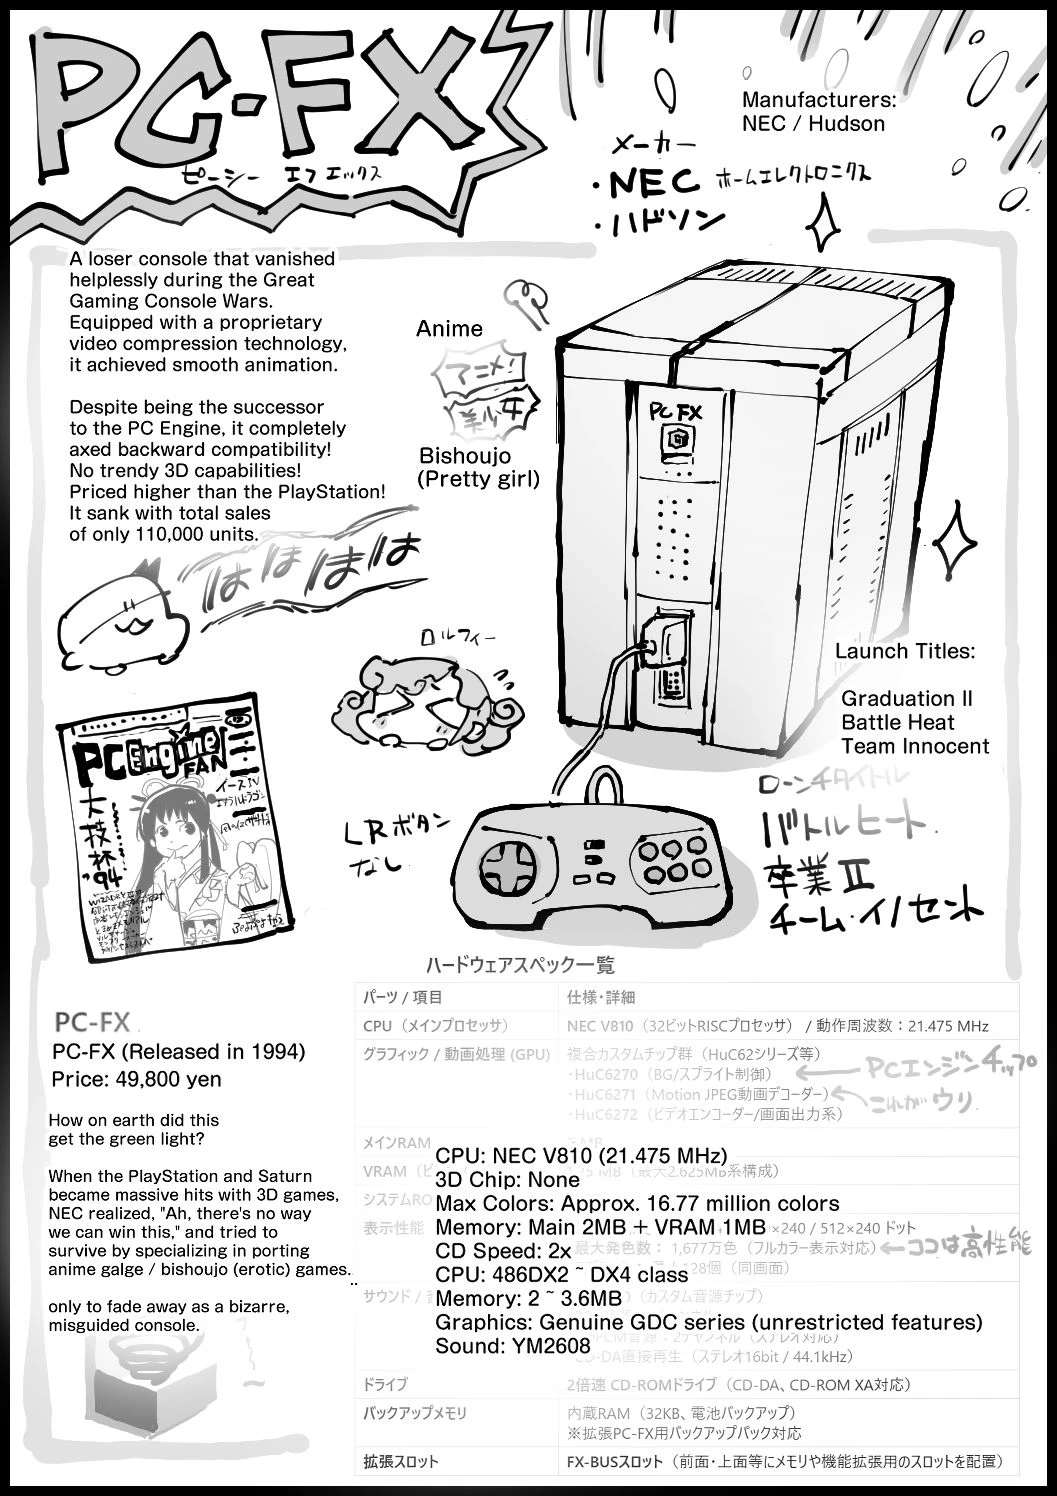 PC-FX
ピーシー エフエックス
Manufacturers:
NEC / Hudson
メーカー
・NEC ホームエレクトロニクス
・ハドソン
A loser console that vanished
helplessly during the Great
Gaming Console Wars.
Equipped with a proprietary
video compression technology,
it achieved smooth animation.
Despite being the successor
to the PC Engine, it completely
axed backward compatibility!
No trendy 3D capabilities!
Priced higher than the PlayStation!
It sank with total sales
of only 110,000 units.
Anime
アニメ!
美少女
Bishoujo
(Pretty girl)
PC FX
はははは
ロルフィー
Launch Titles:
Graduation II
Battle Heat
Team Innocent
ローンチタイトル
バトルヒート
卒業II
チーム・イノセント
PC Engine
FAN
大技杯
'94
イースIV
LRボタン
なし
ハードウェアスペック一覧
パーツ / 項目 仕様・詳細
CPU（メインプロセッサ） NEC V810（32ビットRISCプロセッサ） / 動作周波数：21.475 MHz
グラフィック / 動画処理 (GPU) 複合カスタムチップ群（HuC62シリーズ等）
・HuC6270（BG/スプライト制御） ←PCエンジンチップ
・HuC6271（Motion JPEG動画デコーダー） ←これがウリ
・HuC6272（ビデオエンコーダー/画面出力系）
メインRAM
VRAM（ビ MB（最大2.625MB系構成）
システムRO
表示性能 ×240 / 512×240 ドット
最大発色数： 1,677万色（フルカラー表示対応） ←ココは高性能
128個（同画面）
サウンド / （カスタム音源チップ）
PCM音源：2チャンネル（ステレオ対応）
CD-DA直接再生（ステレオ16bit / 44.1kHz）
ドライブ 2倍速 CD-ROMドライブ（CD-DA、CD-ROM XA対応）
バックアップメモリ 内蔵RAM（32KB、電池バックアップ）
※拡張PC-FX用バックアップパック対応
拡張スロット FX-BUSスロット（前面・上面等にメモリや機能拡張用のスロットを配置）
CPU: NEC V810 (21.475 MHz)
3D Chip: None
Max Colors: Approx. 16.77 million colors
Memory: Main 2MB + VRAM 1MB
CD Speed: 2x
CPU: 486DX2 ~ DX4 class
Memory: 2 ~ 3.6MB
Graphics: Genuine GDC series (unrestricted features)
Sound: YM2608
PC-FX
PC-FX (Released in 1994)
Price: 49,800 yen
How on earth did this
get the green light?
When the PlayStation and Saturn
became massive hits with 3D games,
NEC realized, "Ah, there's no way
we can win this," and tried to
survive by specializing in porting
anime galge / bishoujo (erotic) games..
..
only to fade away as a bizarre,
misguided console.